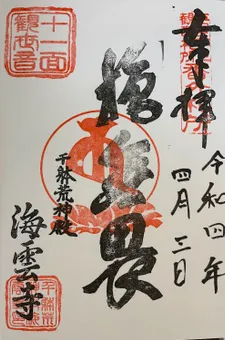 奉拝
令和四年
四月三日
施無畏
千躰荒神殿
十一面
観世音
海雲寺